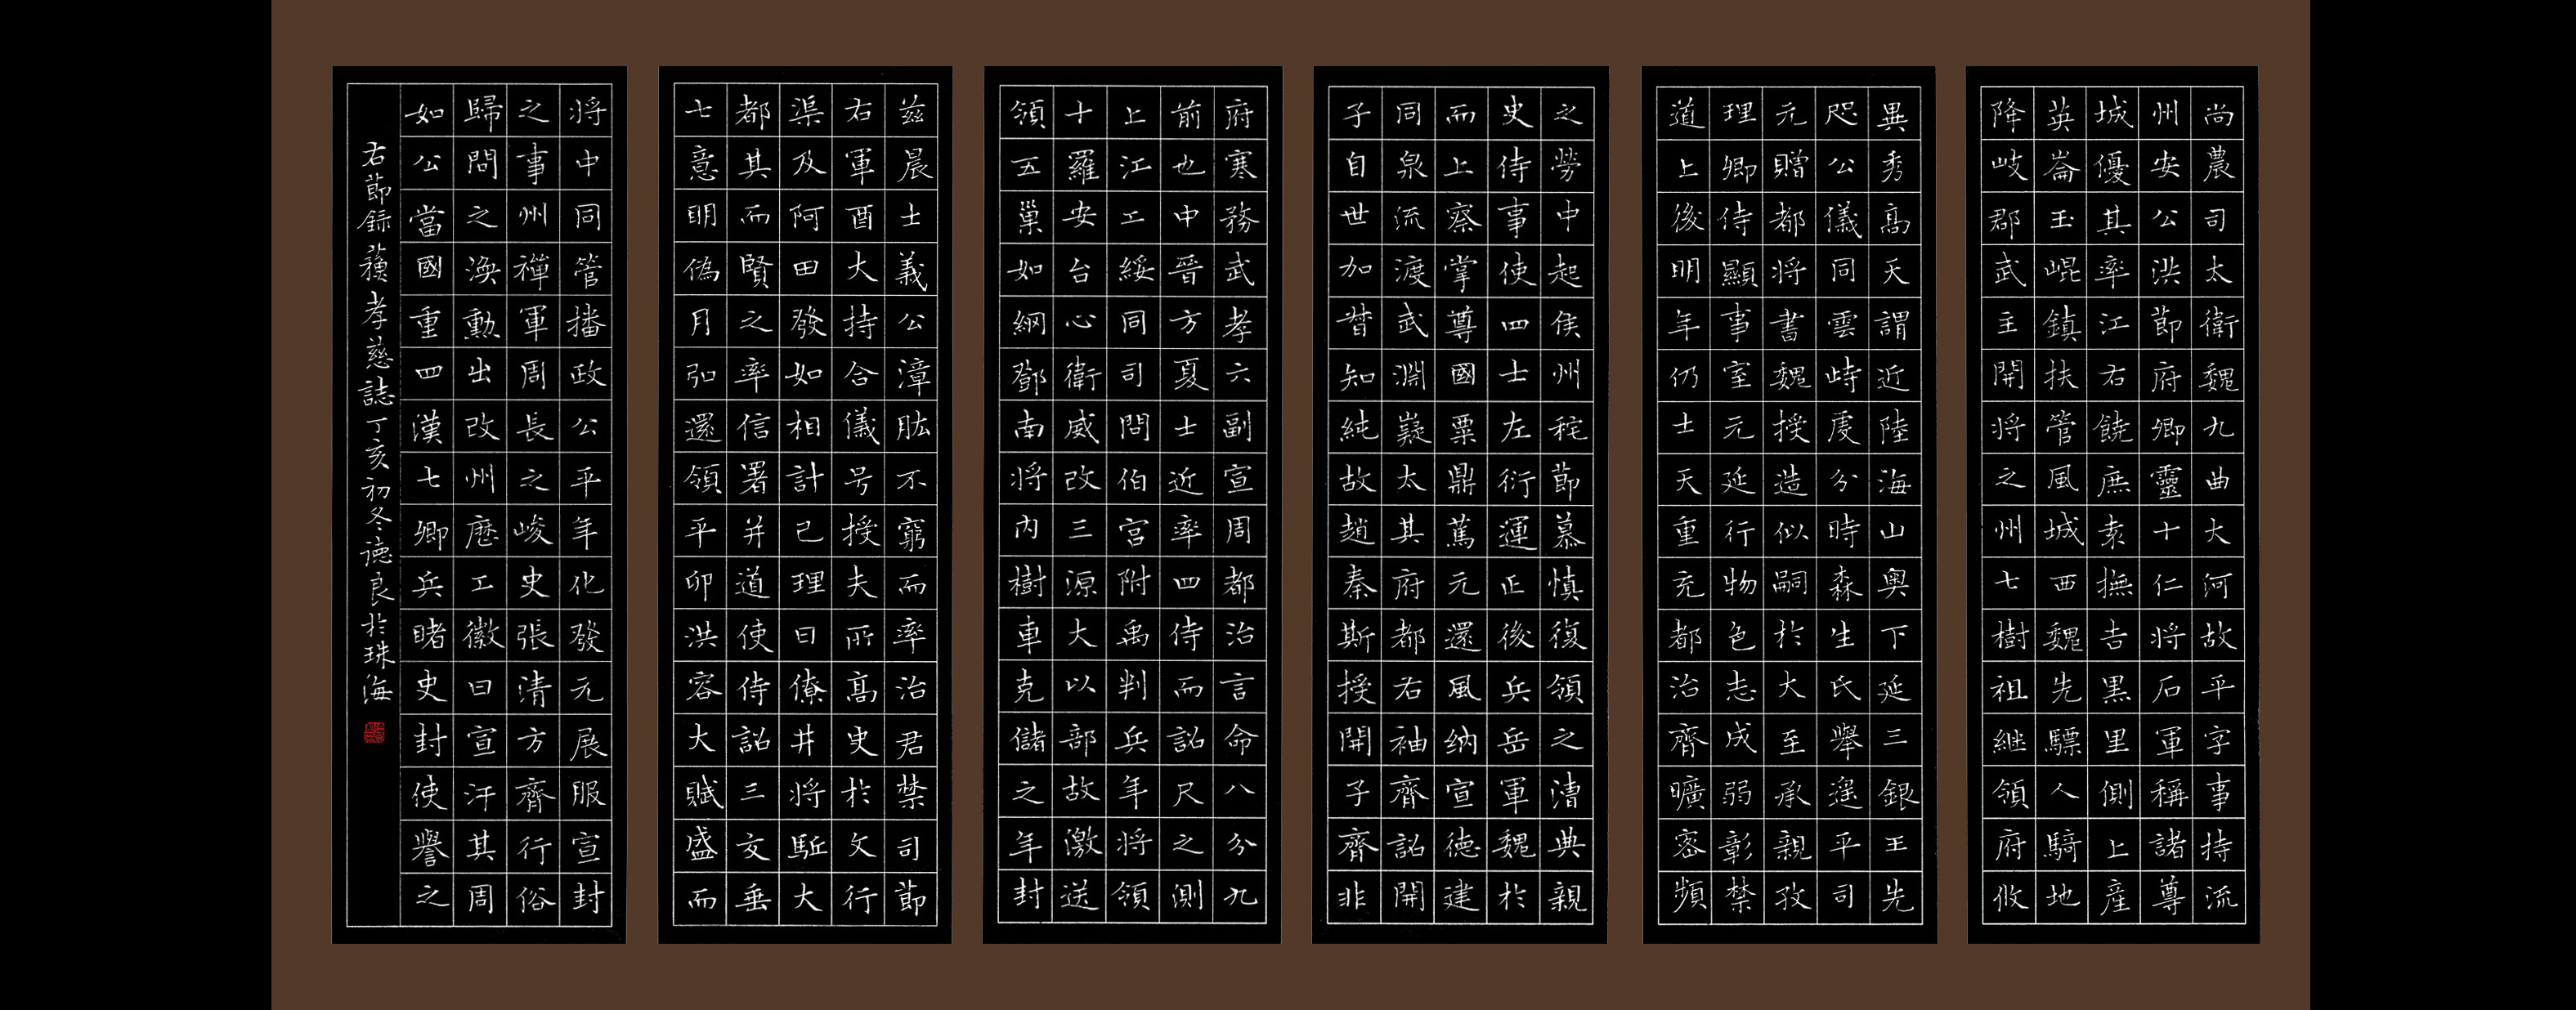 尚農司太衛魏九曲大河故平字事持流
州安公洪節府卿靈十仁將石軍稱諸尊
城優其率江右饒庶袁撫吉黑里側上産
英崙玉崐鎮扶管風城西魏先驃人騎地
降岐郡武主開將之州七樹祖継領府攸
異秀高天謂近陸海山奥下延三銀王先
咫公儀同雲峙虔分時森生氏舉遥平司
元贈都將書魏授造似嗣於大至承親孜
理卿侍顯事室元延行物色志成弱彰禁
道上後明年仍士天重充都治齊曠密頻
之勞中起侯州秺節慕慎復領之漕典親
史侍事使四士左衍運正後兵岳軍魏於
而上察掌尊國粟鼎篤元還風纳宣德建
同泉流渡武淵嶷太其府都右袖齊詔開
子自世加昔知純故趙秦斯授開子齊非
府寒務武孝六副宣周都治言命八分九
前也中晉方夏士近率四侍而詔尺之測
上江工綏同司問伯宮附禹判兵年將領
十羅安台心衛威改三源大以部故激送
領五巢如網鄧南將内樹車克儲之年封
兹晨士義公漳肱不窮而率治君禁司節
右軍酉大持合儀号授夫所高史於文行
渠及阿田發如相計已理曰僚井將駈大
都其而賢之率信署并道使侍詔三交垂
七意明偽月弘還領平卯洪容大賦盛而
將中同管播政公平年化發元展服宣封
之事州禪軍周長之峻史張清方齊行俗
歸問之渙勳出改州歷工徽曰宣汗其周
如公當國重四漢七卿兵睹史封使譽之
右節録蘓孝慈誌丁亥初冬德良於珠海